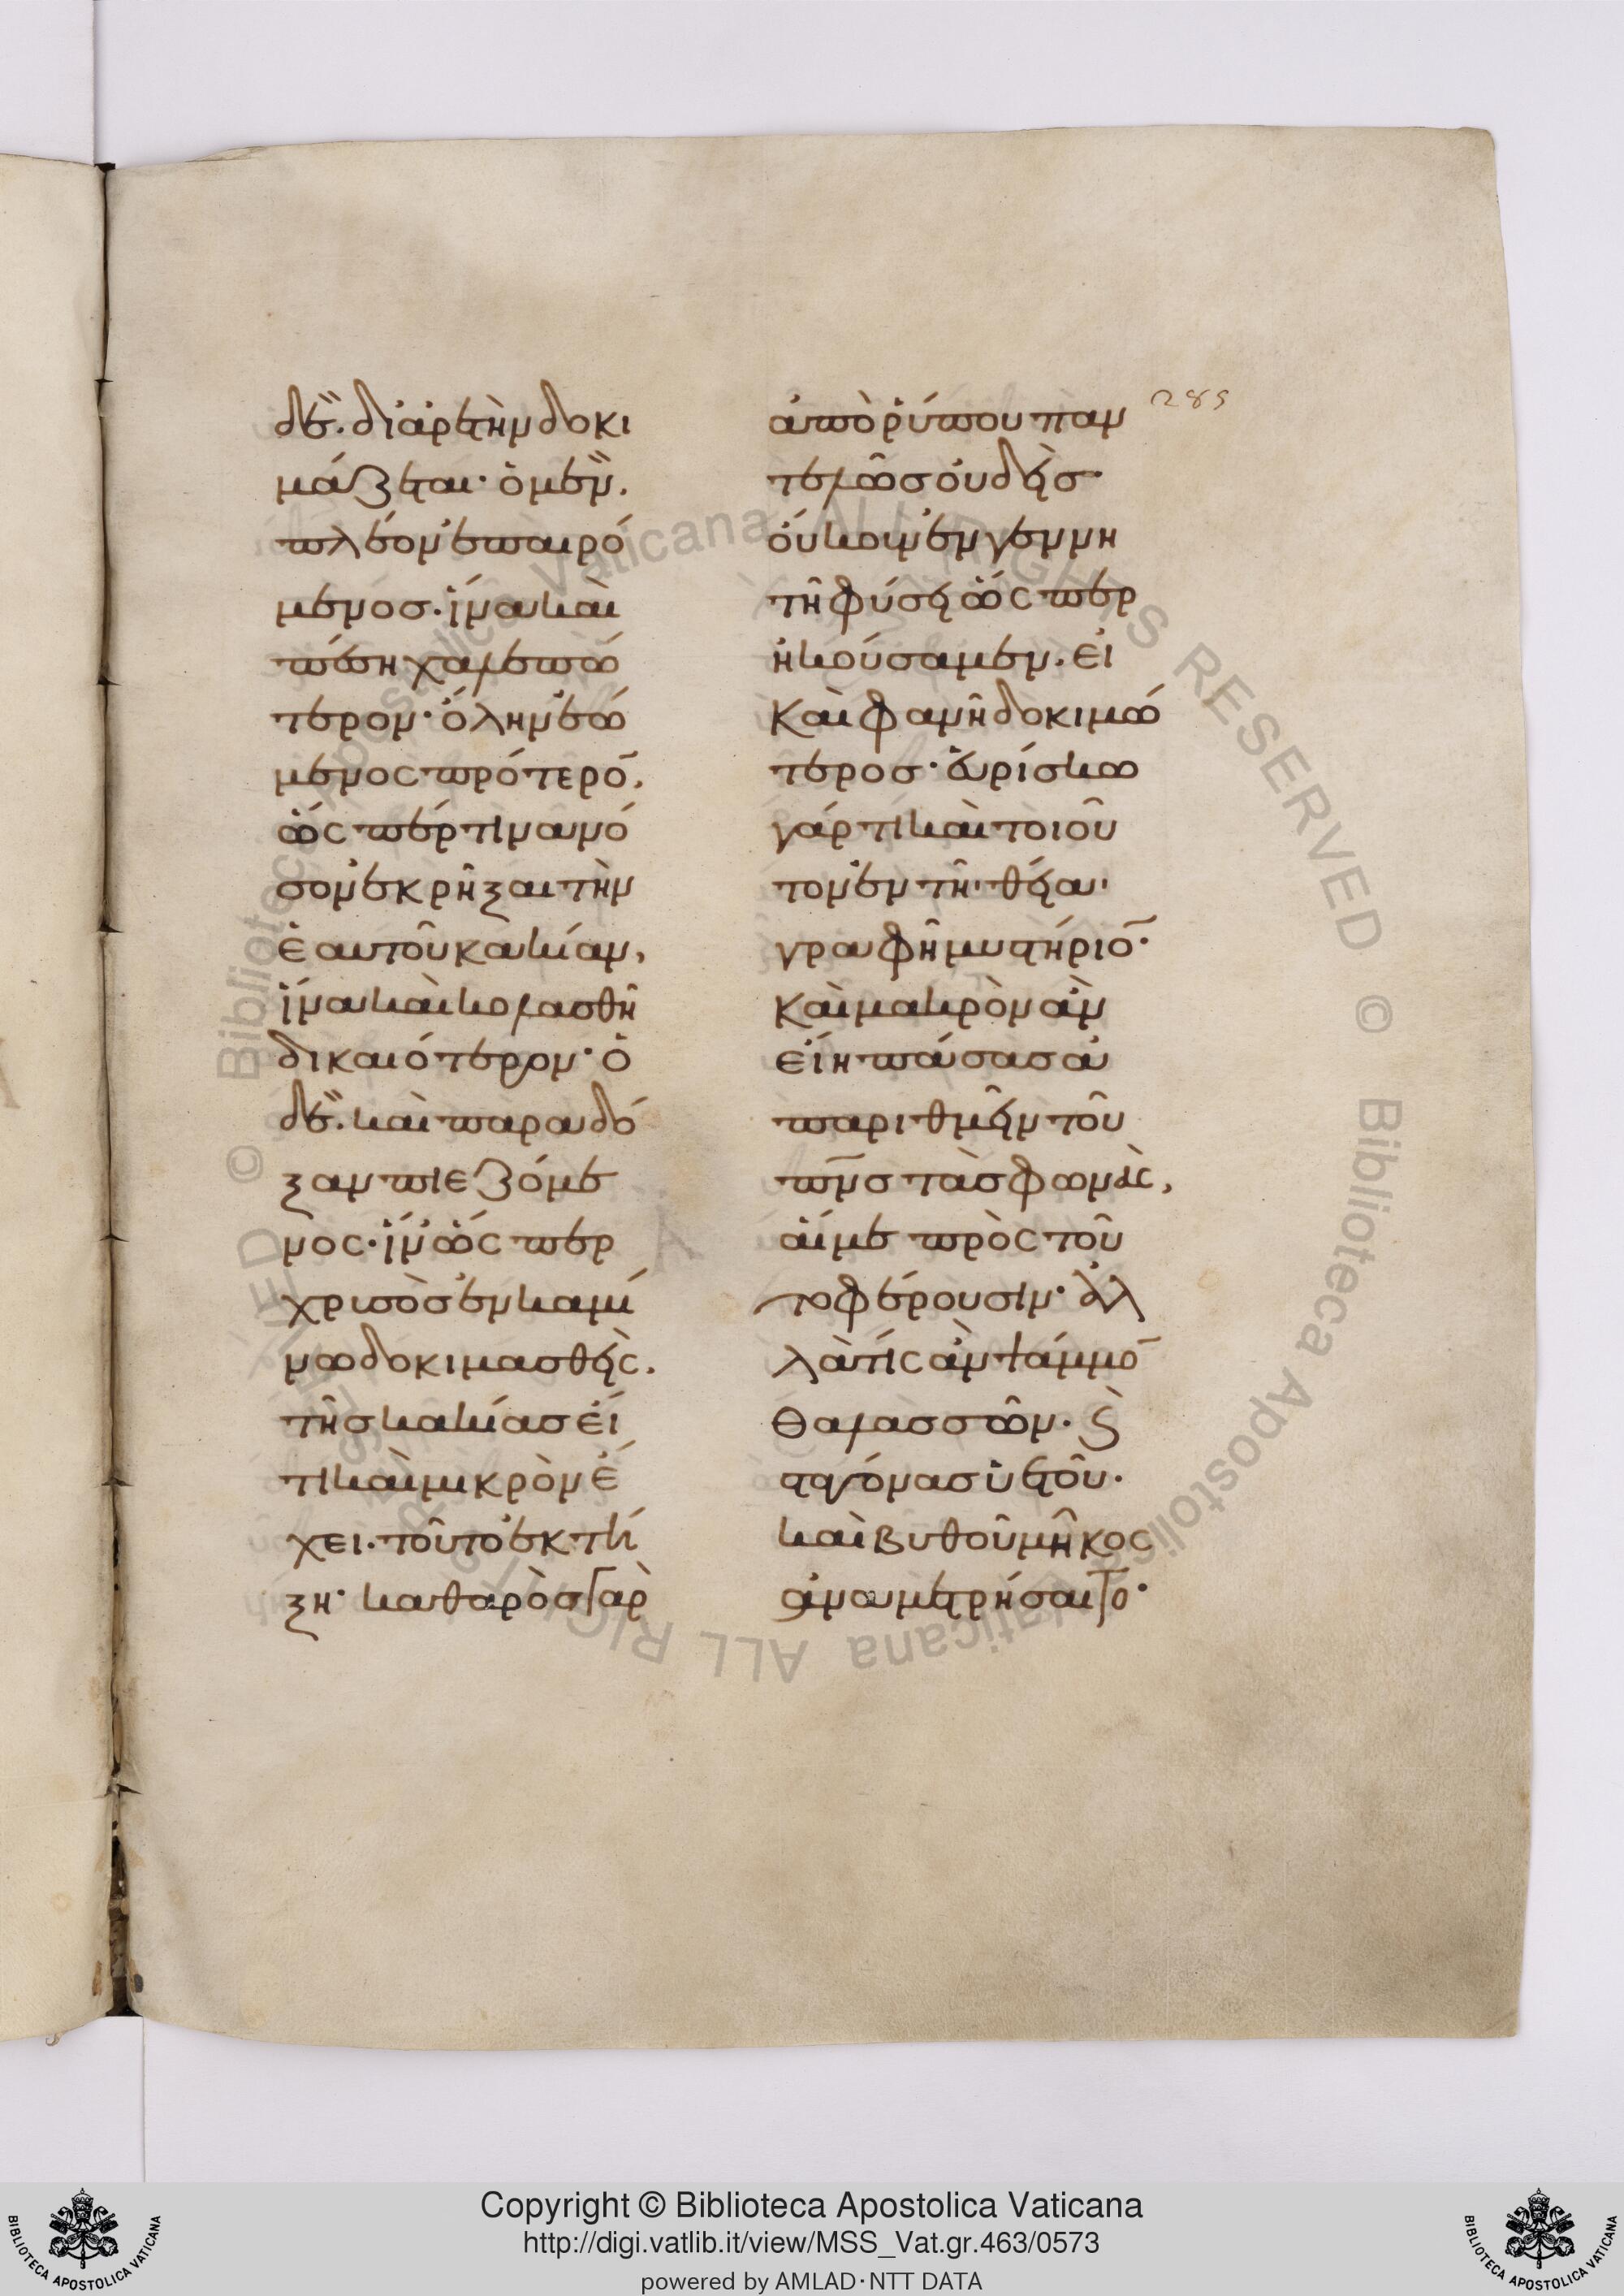 δὲ. δι᾽ ἀρετὴν δοκι
μάζεται· ὁ μὲν.
πλέον ἐπαιρό
μενοσ. ἵνα καὶ
πέση χαλεπώ
τερον· ὅλην ἐώ
μενος πρότερο̅.
ὥς περ τινα νό
σον ἐκρῆξαι τὴν
ἑαυτοῦ κακίαν,
ἵνα καὶ κολασθῆ
δικαιότερον· ὁ
δὲ. καὶ παρα δό
ξαν πιεζόμε
νος· ἵν᾽ ὥς περ
χρυσὸσ ἐν καμί
νω δοκιμασθεὶς.
τῆσ κακίασ εἴ
τι καὶ μικρὸν έ
χει. τοῦτο ἐκτή
ξη· καθαρὸσ γὰρ
289
ἀπὸ ῥύπου παν
τελῶσ οὐδεὶσ·
οὔκουν ἐν γεννη
τῆ φύσει ὥς περ
ἠκούσαμεν. εἰ
καὶ φανῆ δοκιμώ
τεροσ· εὑρίσκω
γάρ τι καὶ τοιοῦ
τον ἐν τῆ θεία
γραφῆ μυστήριο̅·
καὶ μακρὸν ἂν
εἴη πάσασ ἀ
παριθμεῖν τοῦ
πν̅σ τὰσ φωνὰς,
αἵ με πρὸς τοῦ
το φέρουσιν· ἀλ
λὰ τίς ἂν ψάμμο̅
θαλασσῶν. ϗ
σταγόνασ ὑετοῦ.
καὶ βυθοῦ μῆκος
ἀναμετρήσαιτο·
Copyright © Biblioteca Apostolica Vaticana
http://digi.vatlib.it/view/MSS_Vat.gr.463/0573
powered by AMLAD·NTT DATA
BIBLIOTECA APOSTOLICA VATICANA
BIBLIOTECA APOSTOLICA VATICANA
© Biblioteca Apostolica Vaticana ALL RIGHTS RESERVED © Biblioteca Apostolica Vaticana ALL RIGHTS RESERVED